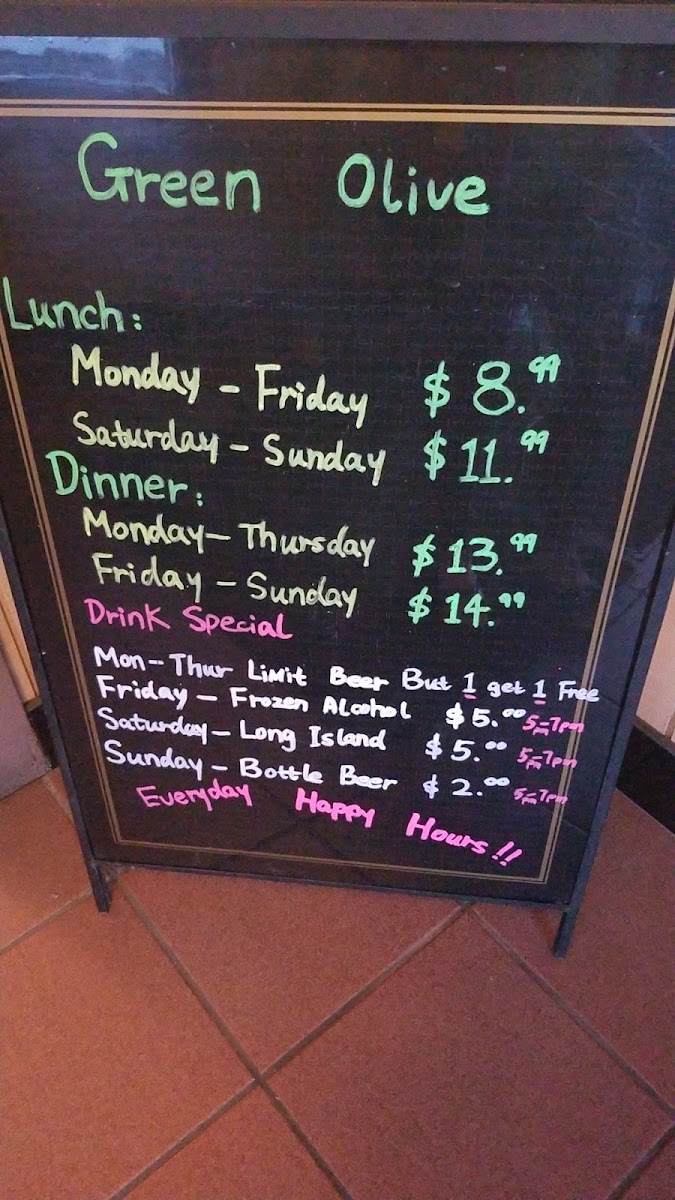 Green Olive
Lunch:
Monday - Friday $ 8.99
Saturday - Sunday $ 11.99
Dinner:
Monday - Thursday $ 13.99
Friday - Sunday $ 14.99
Drink Special
Mon - Thur Limit Beer But 1 get 1 Free
Friday - Frozen Alcohol $ 5.00 5-7pm
Saturday - Long Island $ 5.00 5-7pm
Sunday - Bottle Beer $ 2.00 5-7pm
Everyday Happy Hours!!